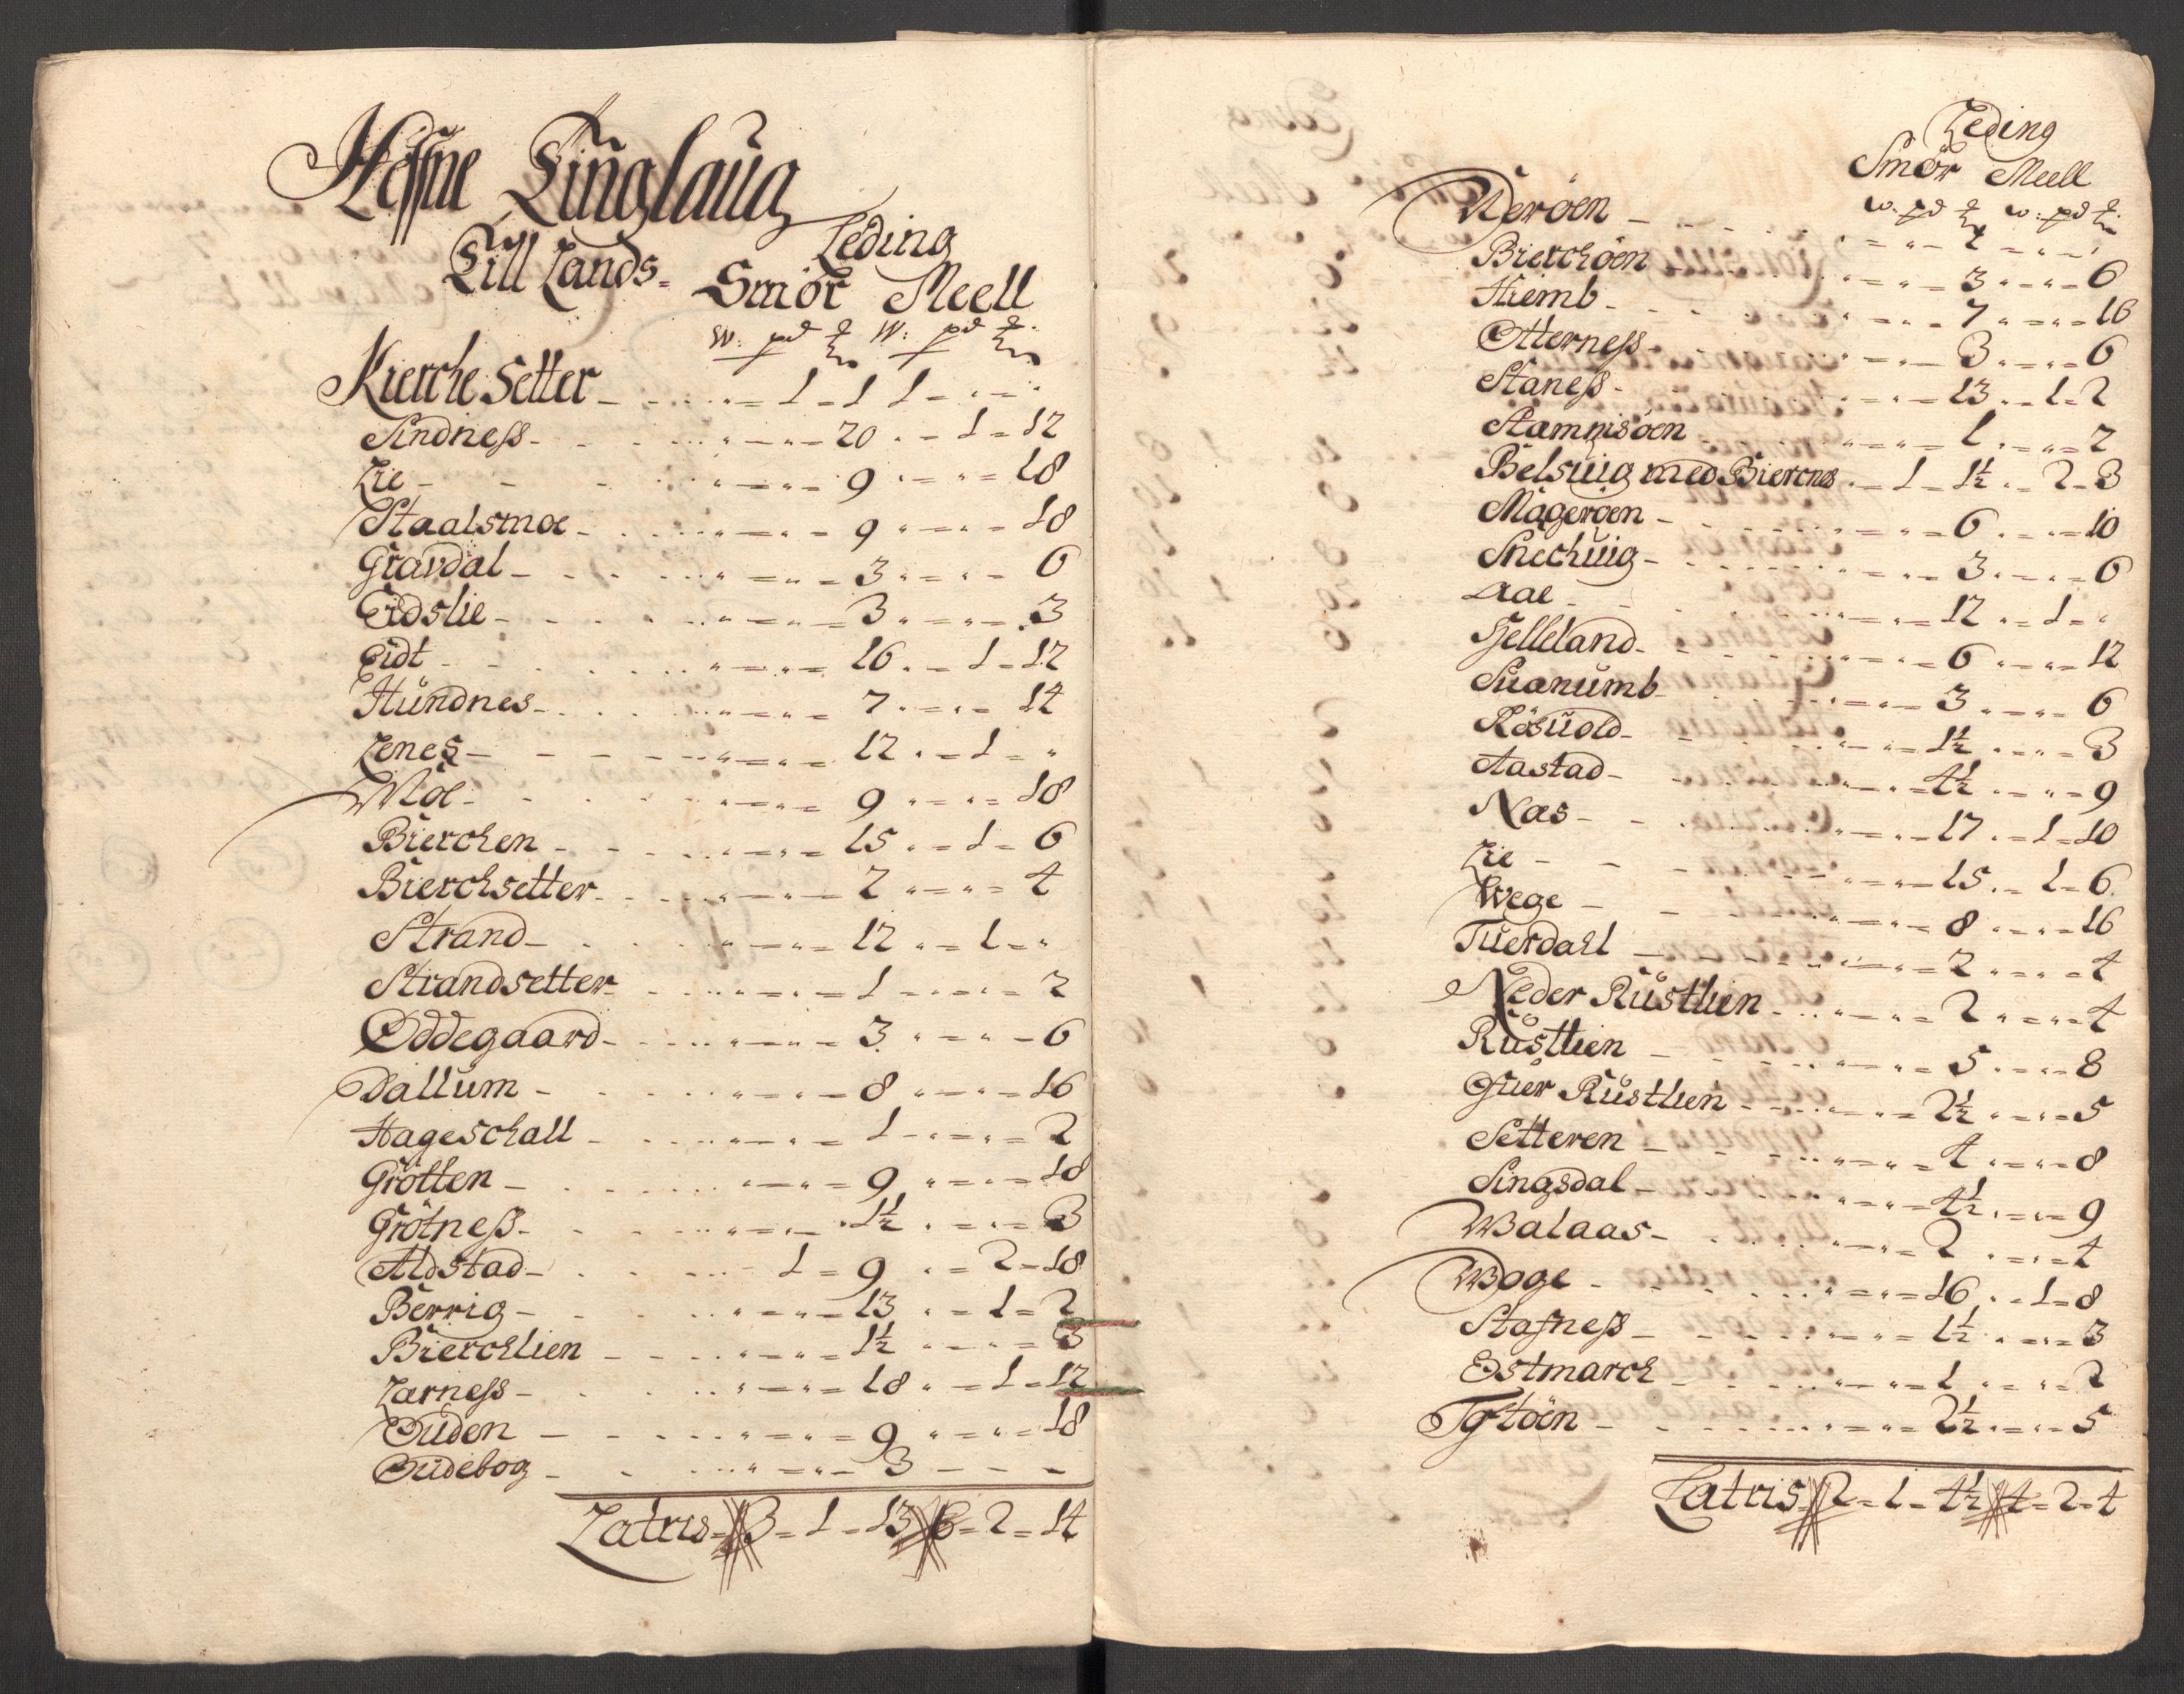 Hefne Tinglaug
Till Lands= Leding
Smör Meell
w: pd ℔ w: pd ℔
Kierche Setter - " = 1 = 1 1 = " = "
Sindness - " = " = 20 " = 1 = 12
Lie - " = " = 9 " = " = 18
Staalsmoe - " = " = 9 " = " = 18
Gravdal - " = " = 3 " = " = 6
Eidslie - " = " = 3 " = " = 3
Eidt - " = " = 16 " = 1 = 12
Hündnes - " = " = 7 " = " = 14
Lenes - " = " = 12 " = 1 = "
Moe - " = " = 9 " = " = 18
Bierchen - " = " = 15 " = 1 = 6
Bierchsetter - " = " = 2 " = " = 4
Strand - " = " = 12 " = 1 = "
Strandsetter - " = " = 1 " = " = 2
Oddegaard - " = " = 3 " = " = 6
Dallum - " = " = 8 " = " = 16
Hageschall - " = " = 1 " = " = 2
Grötten - " = " = 9 " = " = 18
Grötness - " = " = 1½ " = " = 3
Aldstad - 1 = 9 " = 2 = 18
Berrig - " = " = 13 " = 1 = 2
Bierchlien - " = " = 1½ " = " = 3
Larness - " = " = 18 " = 1 = 12
Ouden - " = " = 9 " = " = 18
Oudebog - " = " = 3 - - -
Latris = 3 = 1 = 13 6 = 2 = 14
Leding
Smör Meell
w: pd ℔ w: pd ℔
Werøen - " = " = 2 = " = "
Bierchøen " = " = 3 " = " = 6
Hiemb - " = " = 7 " = " = 16
Otterness - " = " = 3 " = " = 6
Staness - " = " = 13 " = 1 = 2
Stamnisøen - " = " = 1 " = " = 2
Belsuig med Biercnes " = 1 = 1½ " = 2 = 3
Magerøen - " = " = 6 " = " = 10
Snechuig - " = " = 3 " = " = 6
Aae - " = " = 12 " = 1 = "
Helleland - " = " = 6 " = " = 12
Suanumb - " = " = 3 " = " = 6
Rösuold - " = " = 1½ " = " = 3
Aastad - " = " = 4½ " = " = 9
Nas - " = " = 17 " = 1 = 10
Lie - " = " = 15 " = 1 = 6
Wege - " = " = 8 " = " = 16
Tuerdall - " = " = 2 " = " = 4
Neder Rustlien - " = " = 2 " = " = 4
Rustlien - " = " = 5 " = " = 8
Ofuer Rustlien - " = " = 2½ " = " = 5
Setteren - " = " = 4 " = " = 8
Singsdal - " = " = 4½ " = " = 9
Walaas - " = " = 2 " = " = 4
Woge - " = " = 16 " = 1 = 8
Stafness - " = " = 1½ " = " = 3
Ostmarch - " = " = 1 " = " = 2
Tøftøen - " = " = 2½ " = " = 5
Latris = 2 = 1 = 4½ 4 = 2 = 4